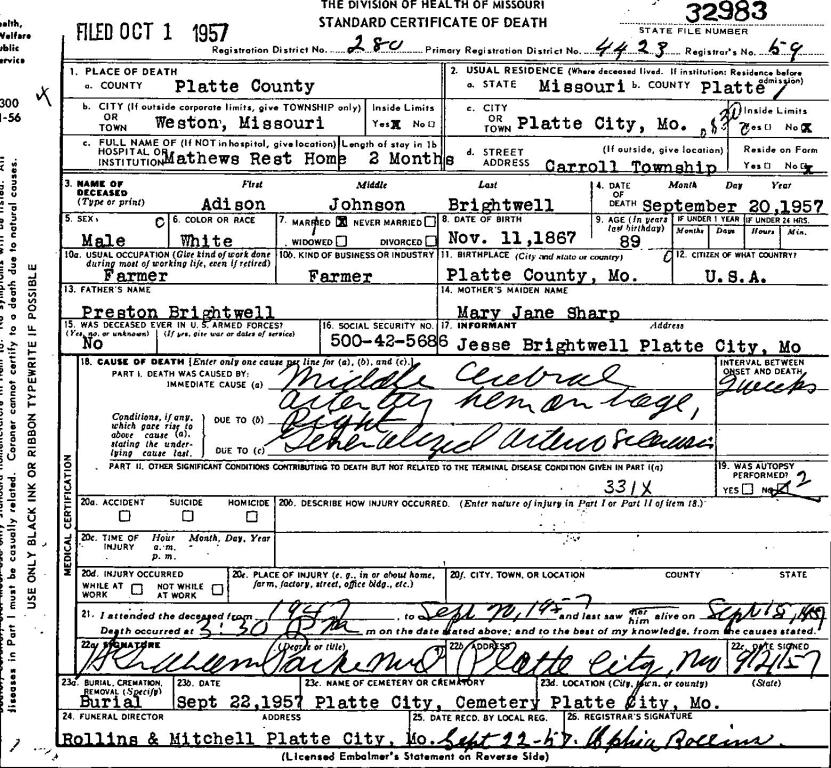 THE DIVISION OF HEALTH OF MISSOURI
STANDARD CERTIFICATE OF DEATH
FILED OCT 1 1957
32983
STATE FILE NUMBER
Registration District No. 280 Primary Registration District No. 4423 Registrar's No. 59
1. PLACE OF DEATH
a. COUNTY Platte County
2. USUAL RESIDENCE (Where deceased lived. If institution: Residence before admission)
a. STATE Missouri b. COUNTY Platte
b. CITY (If outside corporate limits, give TOWNSHIP only) OR TOWN Weston, Missouri
Inside Limits Yes X No
c. CITY OR TOWN Platte City, Mo.
Inside Limits Yes No X
c. FULL NAME OF (If NOT in hospital, give location) HOSPITAL OR INSTITUTION Mathews Rest Home
Length of stay in 1b 2 Months
d. STREET ADDRESS (If outside, give location) Carroll Township
Reside on Farm Yes No X
3. NAME OF DECEASED (Type or print)
First Middle Last
Adison Johnson Brightwell
4. DATE OF DEATH Month Day Year
September 20,1957
5. SEX Male
6. COLOR OR RACE White
7. MARRIED X NEVER MARRIED WIDOWED DIVORCED
8. DATE OF BIRTH Nov. 11,1867
9. AGE (In years last birthday) 89
IF UNDER 1 YEAR Months Days
IF UNDER 24 HRS. Hours Min.
10a. USUAL OCCUPATION (Give kind of work done during most of working life, even if retired) Farmer
10b. KIND OF BUSINESS OR INDUSTRY Farmer
11. BIRTHPLACE (City and state or country) Platte County, Mo.
12. CITIZEN OF WHAT COUNTRY? U.S.A.
13. FATHER'S NAME Preston Brightwell
14. MOTHER'S MAIDEN NAME Mary Jane Sharp
15. WAS DECEASED EVER IN U. S. ARMED FORCES? (Yes, no, or unknown) (If yes, give war or dates of service) No
16. SOCIAL SECURITY NO. 500-42-5686
17. INFORMANT Address
Jesse Brightwell Platte City, Mo
18. CAUSE OF DEATH [Enter only one cause per line for (a), (b), and (c).]
PART I. DEATH WAS CAUSED BY:
IMMEDIATE CAUSE (a) Middle Cerebral
artery hemorrhage,
Conditions, if any, which gave rise to above cause (a), stating the underlying cause last.
DUE TO (b) Right
DUE TO (c) Generalized arteriosclerosis
INTERVAL BETWEEN ONSET AND DEATH
2 weeks
PART II. OTHER SIGNIFICANT CONDITIONS CONTRIBUTING TO DEATH BUT NOT RELATED TO THE TERMINAL DISEASE CONDITION GIVEN IN PART I(a)
331X
19. WAS AUTOPSY PERFORMED? YES NO X 2
20a. ACCIDENT SUICIDE HOMICIDE
20b. DESCRIBE HOW INJURY OCCURRED. (Enter nature of injury in Part I or Part II of item 18.)
20c. TIME OF INJURY Hour Month, Day, Year
a.m.
p.m.
20d. INJURY OCCURRED
WHILE AT WORK NOT WHILE AT WORK
20e. PLACE OF INJURY (e. g., in or about home, farm, factory, street, office bldg., etc.)
20f. CITY, TOWN, OR LOCATION COUNTY STATE
21. I attended the deceased from 1947, to Sept 20, 1957 and last saw her him alive on Sept 18, 1957
Death occurred at 3:30 P m on the date stated above; and to the best of my knowledge, from the causes stated.
22a. SIGNATURE (Degree or title)
22b. ADDRESS Platte City, Mo
22c. DATE SIGNED 9/21/57
23a. BURIAL, CREMATION, REMOVAL (Specify) Burial
23b. DATE Sept 22,1957
23c. NAME OF CEMETERY OR CREMATORY Platte City, Cemetery
23d. LOCATION (City, town, or county) (State) Platte City, Mo.
24. FUNERAL DIRECTOR ADDRESS
Rollins & Mitchell Platte City, Mo.
25. DATE RECD. BY LOCAL REG. Sept 22-57.
26. REGISTRAR'S SIGNATURE Ophia Rollins
(Licensed Embalmer's Statement on Reverse Side)
MEDICAL CERTIFICATION
USE ONLY BLACK INK OR RIBBON TYPEWRITE IF POSSIBLE
diseases in Part I must be casually related. Coroner cannot certify to a death due to natural causes.